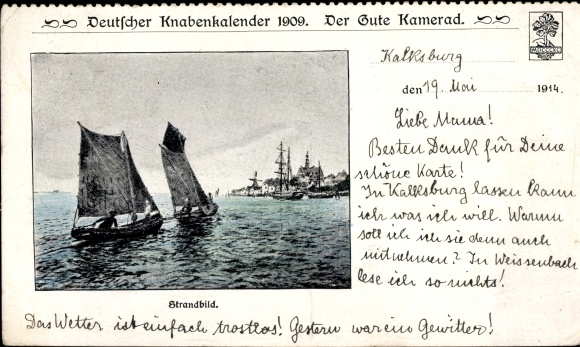 Deutscher Knabenkalender 1909. Der Gute Kamerad.
Kalksburg
den 19. Mai 1914.
Liebe Mama!
Besten Dank für Deine
schöne Karte!
In Kalksburg lassen kann
ich was ich will. Warum
soll ich ich sie denn auch
mitnehmen? In Weissenbach
lese ich so nichts!
Strandbild.
Das Wetter ist einfach trostlos! Gestern war ein Gewitter!